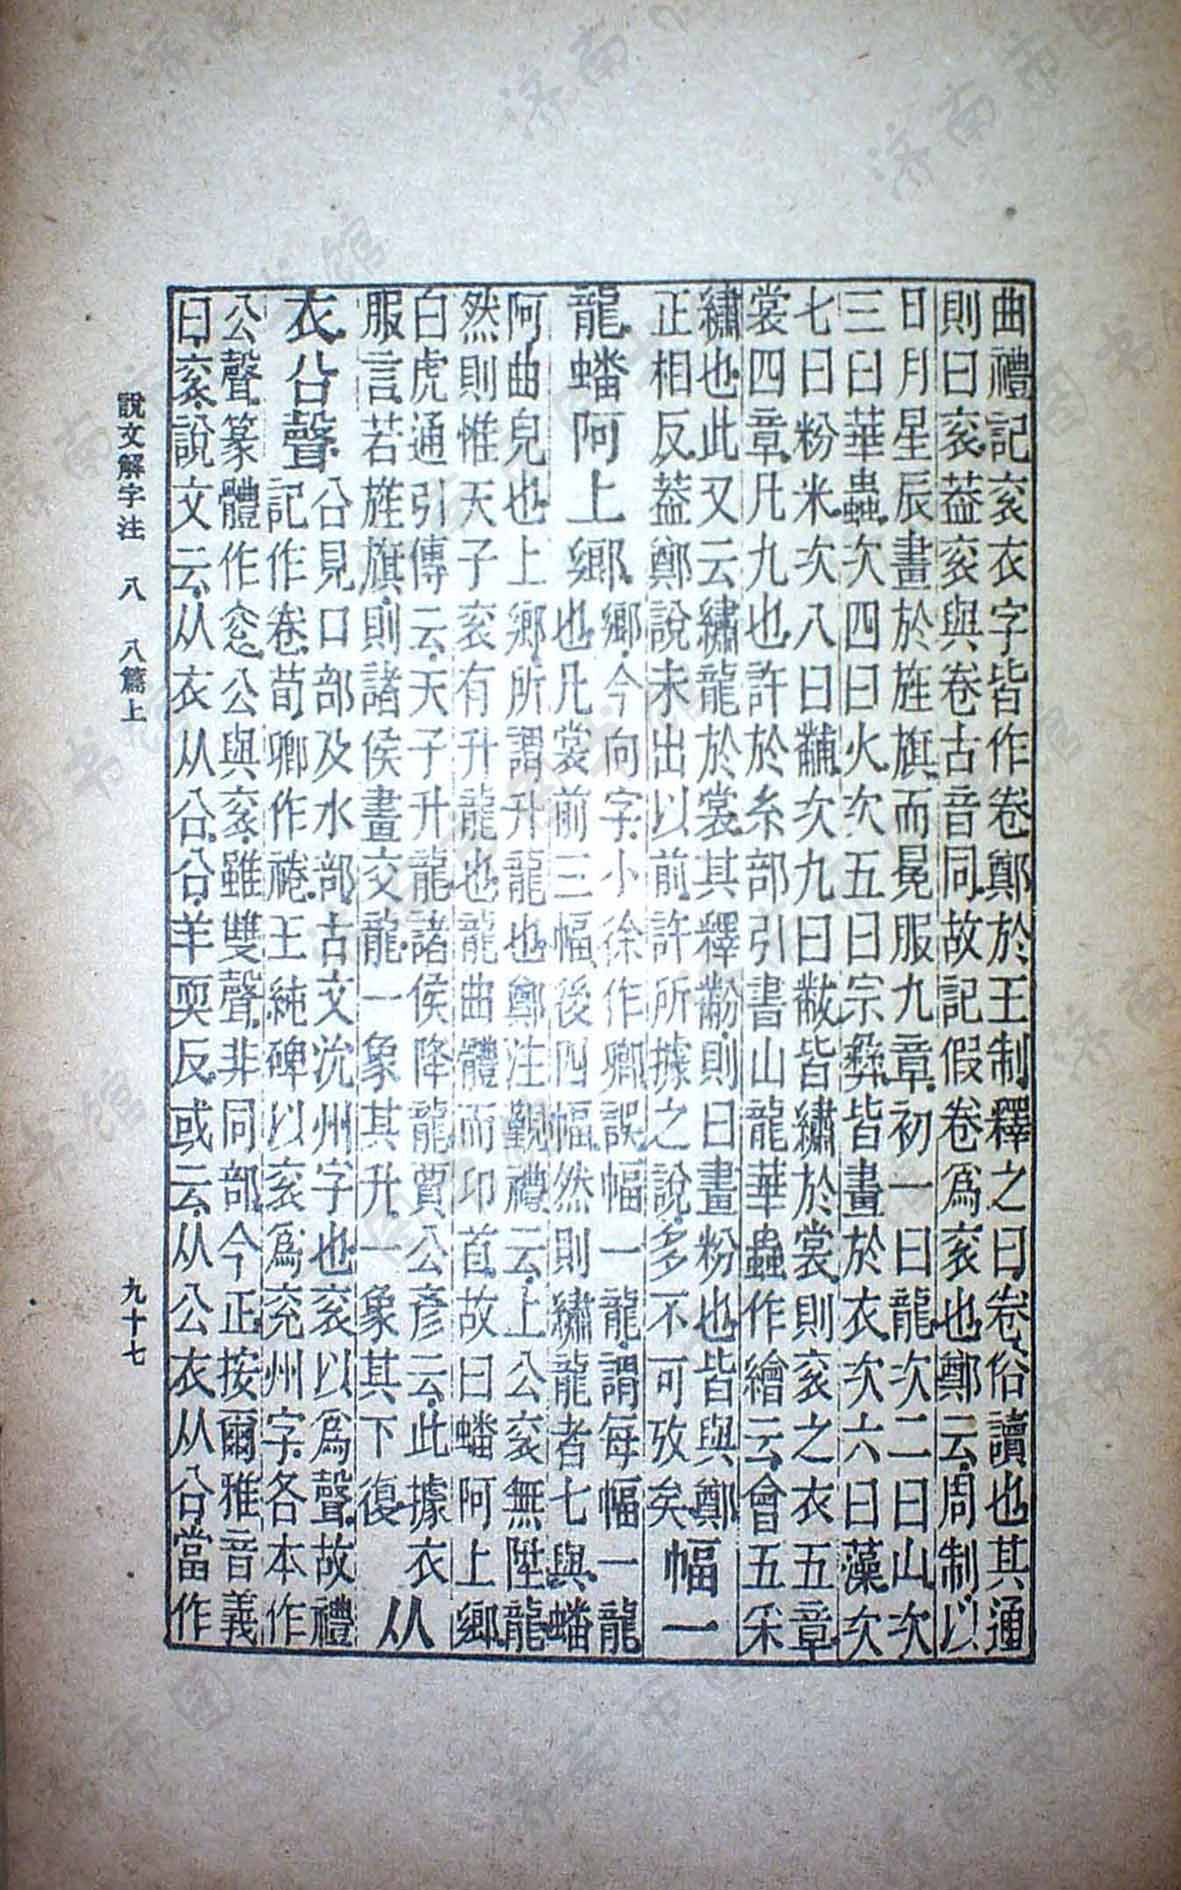 曲禮記衮衣字皆作卷鄭於王制釋之曰卷俗讀也其通
則曰衮葢衮與卷古音同故記假卷爲衮也鄭云周制以
日月星辰畫於旌旗而冕服九章初一曰龍次二曰山次
三曰華蟲次四曰火次五曰宗彝皆畫於衣次六曰藻次
七曰粉米次八曰黼次九曰黻皆繡於裳則衮之衣五章
裳四章凡九也許於糸部引書山龍華蟲作繪云會五采
繡也此又云繡龍於裳其釋黺則曰畫粉也皆與鄭
正相反葢鄭說未出以前許所據之說多不可攷矣
幅一
龍蟠阿上鄉
鄉今向字小徐作卿誤幅一龍謂每幅一龍
也凡裳前三幅後四幅然則繡龍者七與蟠
阿曲皃也上鄉所謂升龍也鄭注覲禮云上公衮無陞龍
然則惟天子衮有升龍也龍曲體而卬首故曰蟠阿上鄉
白虎通引傳云天子升龍諸侯降龍賈公彥云此據衣
服言若旌旗則諸侯畫交龍一象其升一象其下復
从
衣㕣聲
㕣見口部及水部古文沇州字也衮以爲聲故禮
記作卷荀卿作裷王純碑以衮爲兖州字各本作
公聲篆體作公與衮雖雙聲非同部今正按爾雅音義
曰衮說文云从衣从㕣㕣羊耎反或云从公衣从㕣當作
說文解字注 八 八篇上 九十七